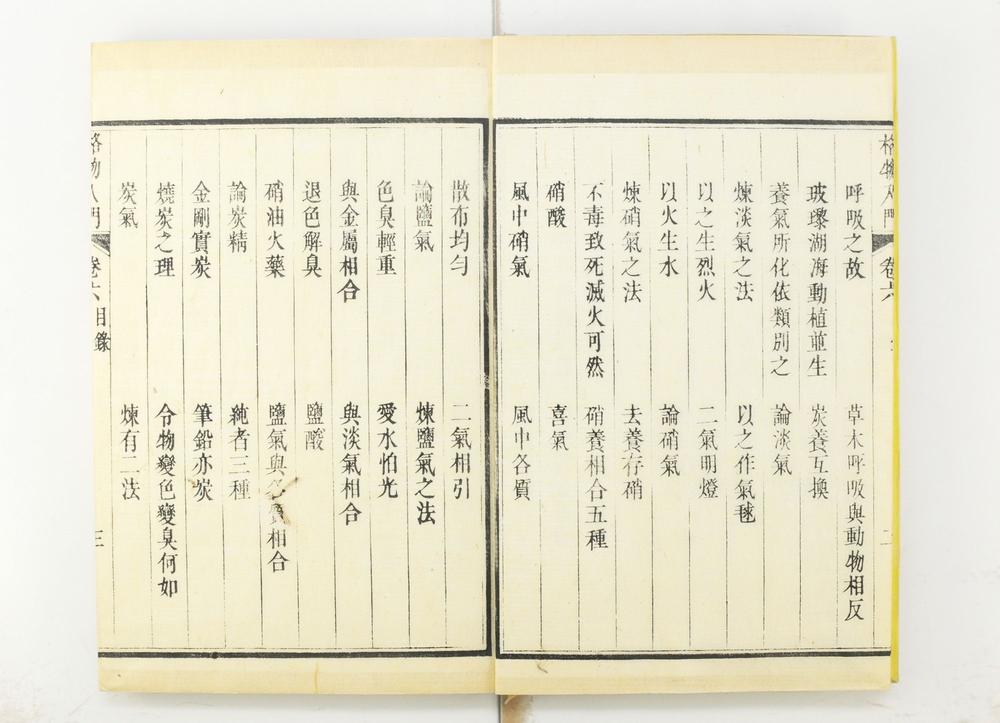 格物入門
卷六
二
呼吸之故 草木呼吸與動物相反
玻瓈湖海動植並生 炭養互換
養氣所化依類別之 論淡氣
煉淡氣之法 以之作氣毬
以之生烈火 二氣明燈
以火生水 論硝氣
煉硝氣之法 去養存硝
不毒致死滅火可然 硝養相合五種
硝酸 喜氣
風中硝氣 風中各質
散布均勻 二氣相引
論鹽氣 煉鹽氣之法
色臭輕重 愛水怕光
與金屬相合 與淡氣相合
退色解臭 鹽酸
硝油火藥 鹽氣與各質相合
論炭精 純者三種
金剛實炭 筆鉛亦炭
燒炭之理 令物變色變臭何如
炭氣 煉有二法
格物入門
卷六目錄
三